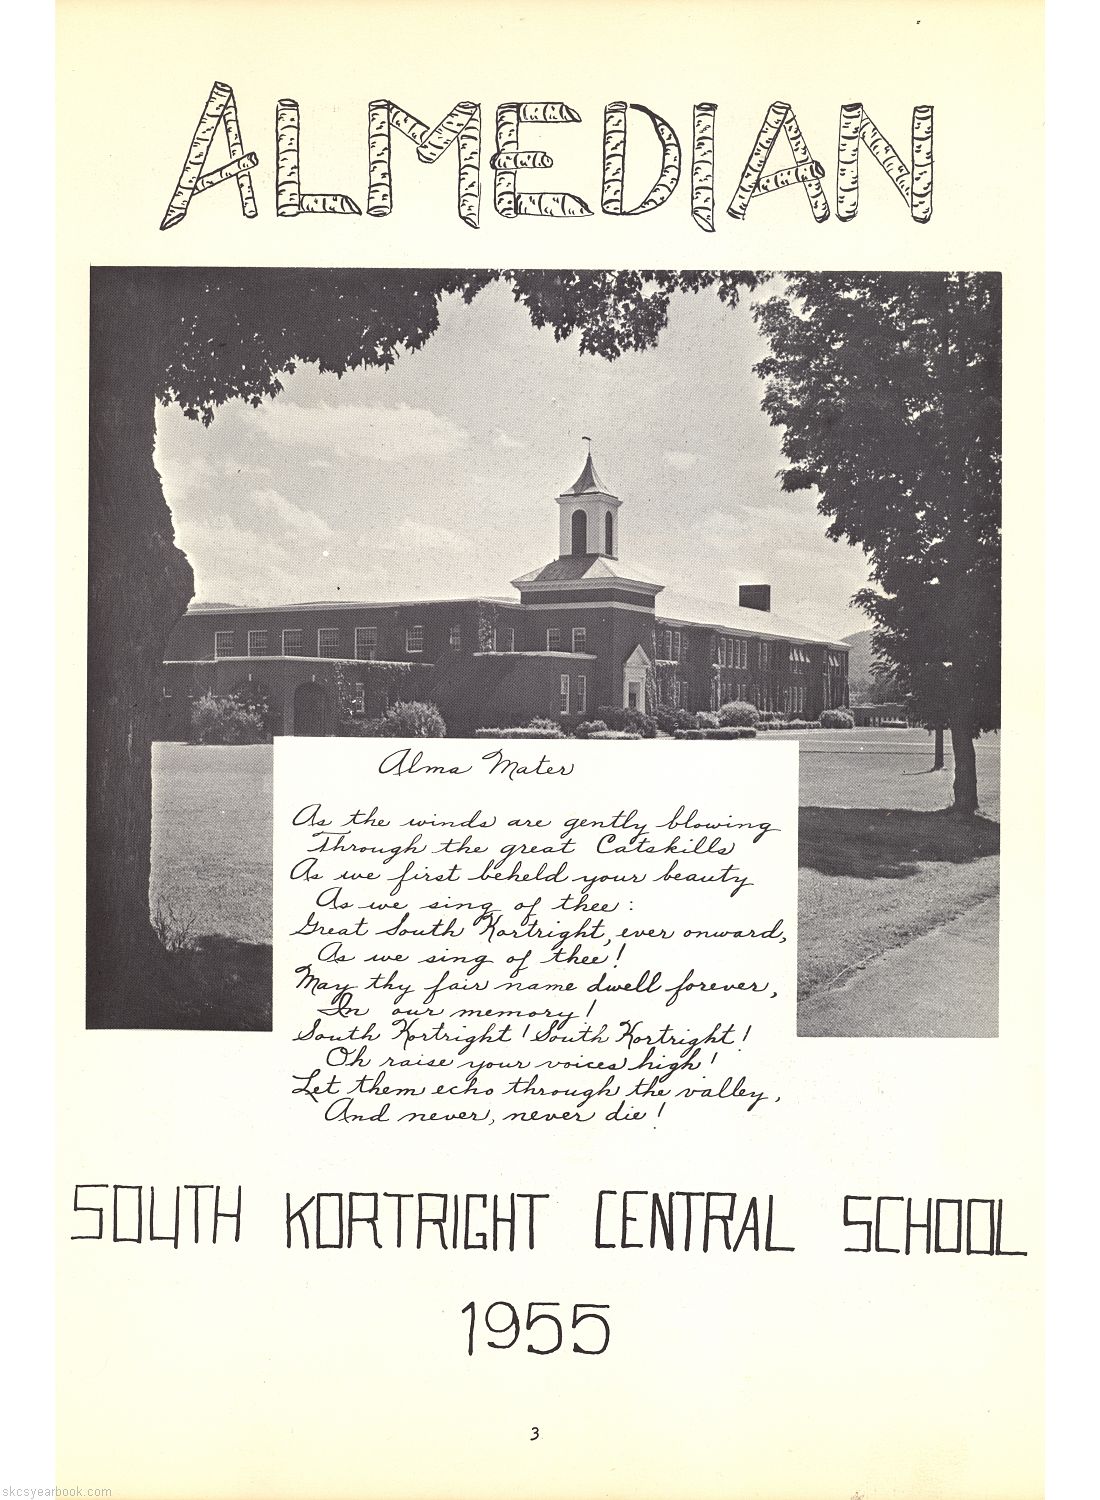 ALMEDIAN
Alma Mater
As the winds are gently blowing
Through the great Catskills
As we first beheld your beauty
As we sing of thee:
Great South Kortright, ever onward,
As we sing of thee!
May thy fair name dwell forever,
In our memory!
South Kortright! South Kortright!
Oh raise your voices high!
Let them echo through the valley,
And never, never die!
SOUTH KORTRIGHT CENTRAL SCHOOL
1955
3
skcsyearbook.com